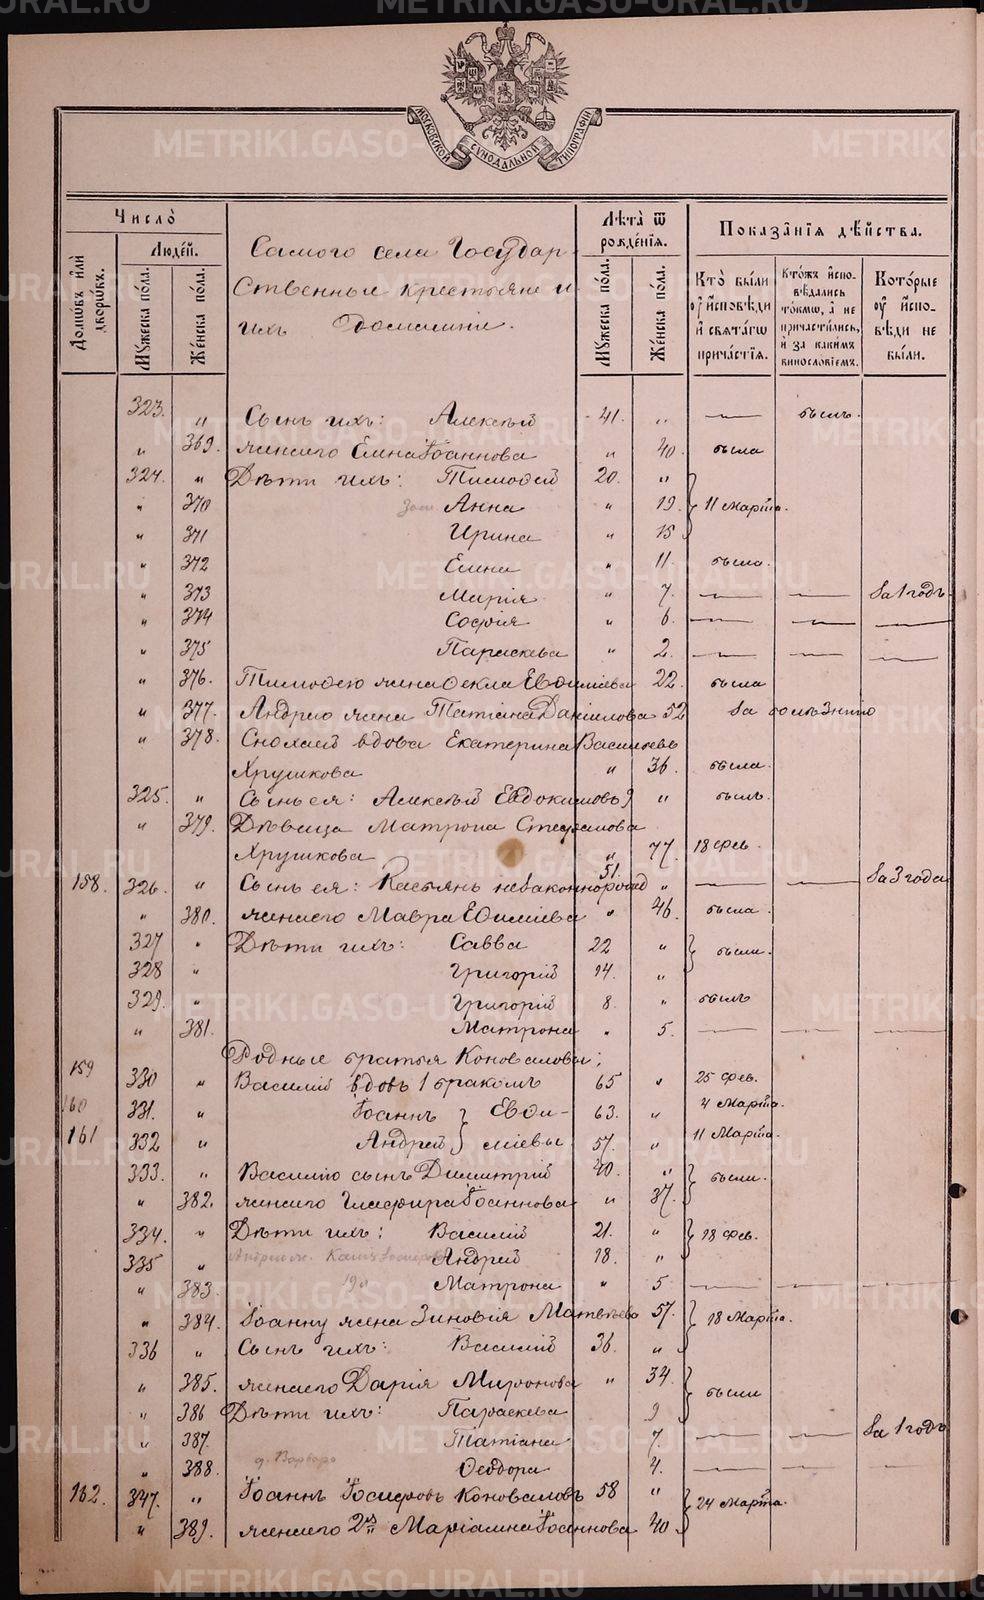 METRIKI.GASO-URAL.RU
МОСКОВСКОЙ СѴНОДАЛЬНОЙ ТИПОГРАФІИ
Число̀
Люде́й.
Домѡ́въ и҆лѝ дворѡ́въ.
Мꙋ́жеска по́ла.
Же́нска по́ла.
Самого села Государ-
ственные крестьяне и
ихъ домашніе.
Лѣ́та ѿ рожде́нїѧ.
Мꙋ́жеска по́ла.
Же́нска по́ла.
Показа̑нїѧ дѣ́йства.
Кто̀ бы́ли оу҆ и҆сповѣди и҆ свѧта́гѡ прича́стїѧ.
Кто́жъ и҆спо-вѣдались то́кмѡ, а҆ не причасти́лись, и҆ за каки́мъ винослове́мъ.
Кото́рые оу҆ и҆спо-вѣди не бы́ли.
323. „ Сынъ ихъ: Алексѣй 41. „ — былъ.
„ 369. жена его Елена Іоаннова „ 40. была
324. „ Дѣти ихъ: Тимоѳей 20. „
„ 370 Анна „ 19. 11 марта.
„ 371 Ирина „ 15
„ 372 Елена „ 11. была.
„ 373 Марія „ 7. — — За 1 годъ.
„ 374 Софія „ 6. — — —
„ 375 Параскева „ 2. — — —
„ 376. Тимоѳею жена Ѳекла Евѳиміева 22. была
„ 377. Андрею жена Татіана Даніилова 52 За болѣзнію
„ 378. Снохаей вдова Екатерина Васильева
Хрушкова „ 36. была.
325. „ Сынъ ея: Алексѣй Евдокимовъ 9 „ былъ.
„ 379. Дѣвица Матрона Стефанова
Хрушкова „ 77. 18 фев.
158. 326. „ Сынъ ея: Касьянъ незаконнорожд 51. „ — — За 3 года
„ 380. жена его Мавра Евѳиміева „ 46. была.
327 „ Дѣти ихъ: Савва 22 „ были.
328 „ Григорій 14. „
329. „ Григорій 8. „ былъ
„ 381. Матрона „ 5. — — —
Родные братья Коноваловы:
159 330 „ Василій вдовъ 1 бракомъ 65 „ 25 фев.
160 331. „ Іоаннъ } Евѳи- 63. „ 4 Марта.
161 332 „ Андрей } міевы. 57. „ 11 Марта.
333. „ Василію сынъ Димитрій 40. „ были.
„ 382. жена его Глафира Іоаннова „ 37.
334. „ Дѣти ихъ: Василій 21. „ 18 фев.
335 „ Андрей 18. „
„ 383. Матрона „ 5 — — —
„ 384. Іоанну жена Зиновія Матвѣева 57. 18 Марта.
336 „ Сынъ ихъ: Василій 36. „
„ 385. жена его Дарія Миронова „ 34. были
„ 386 Дѣти ихъ: Параскева 9
„ 387. Татіана 7. — — За 1 годъ
д. Варвара
„ 388. Ѳеодора 4. — — —
162. 347. „ Іоаннъ Іосифовъ Коноваловъ 58 „ 24 Марта.
„ 389. жена его 2я Маріамна Іоаннова 40.